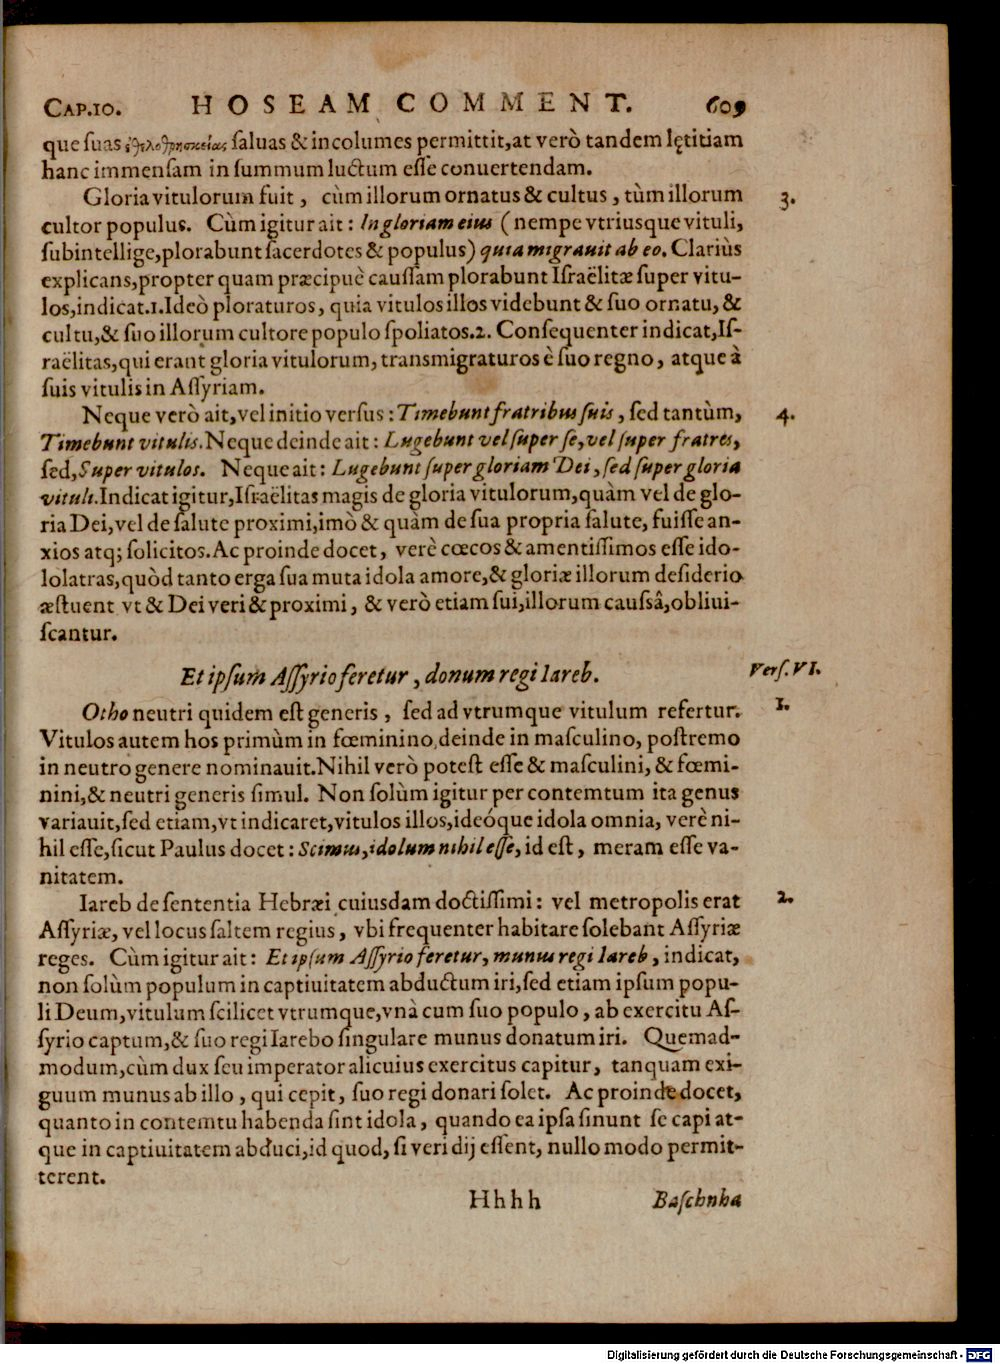 CAP.10. HOSEAM COMMENT. 609
que ſuas ἐθελοθρησκείας ſaluas & incolumes permittit, at verò tandem lętitiam
hanc immenſam in ſummum luctum eſſe conuertendam.
Gloria vitulorum fuit, cùm illorum ornatus & cultus, tùm illorum 3.
cultor populus. Cùm igitur ait: In gloriam eius (nempe vtriusque vituli,
ſubintellige, plorabunt ſacerdotes & populus) quia migrauit ab eo. Clariùs
explicans, propter quam præcipuè cauſſam plorabunt Iſraëlitæ ſuper vitu-
los, indicat. 1. Ideò ploraturos, quia vitulos illos videbunt & ſuo ornatu, &
cultu, & ſuo illorum cultore populo ſpoliatos. 2. Conſequenter indicat, Iſ-
raëlitas, qui erant gloria vitulorum, transmigraturos è ſuo regno, atque à
ſuis vitulis in Aſſyriam.
Neque verò ait, vel initio verſus: Timebunt fratribus ſuis, ſed tantùm, 4.
Timebunt vitulis. Neque deinde ait: Lugebunt vel ſuper ſe, vel ſuper fratres,
ſed, Super vitulos. Neque ait: Lugebunt ſuper gloriam Dei, ſed ſuper gloria
vituli. Indicat igitur, Iſraëlitas magis de gloria vitulorum, quàm vel de glo-
ria Dei, vel de ſalute proximi, imò & quàm de ſua propria ſalute, fuiſſe an-
xios atq; ſolicitos. Ac proinde docet, verè cœcos & amentiſſimos eſſe ido-
lolatras, quòd tanto erga ſua muta idola amore, & gloriæ illorum deſiderio
æſtuent vt & Dei veri & proximi, & verò etiam ſui, illorum cauſsâ, obliui-
ſcantur.
Et ipſum Aſſyrio feretur, donum regi Iareb. Verſ. VI.
Otho neutri quidem eſt generis, ſed ad vtrumque vitulum refertur. 1.
Vitulos autem hos primùm in fœminino, deinde in masculino, poſtremo
in neutro genere nominauit. Nihil verò poteſt eſſe & maſculini, & fœmi-
nini, & neutri generis ſimul. Non ſolùm igitur per contemtum ita genus
variauit, ſed etiam, vt indicaret, vitulos illos, ideóque idola omnia, verè ni-
hil eſſe, ſicut Paulus docet: Scimus, idolum nihil eſſe, id eſt, meram eſſe va-
nitatem.
Iareb de ſententia Hebræi cuiusdam doctiſſimi: vel metropolis erat 2.
Aſſyriæ, vel locus ſaltem regius, vbi frequenter habitare ſolebant Aſſyriæ
reges. Cùm igitur ait: Et ipſum Aſſyrio feretur, munus regi Iareb, indicat,
non ſolùm populum in captiuitatem abductum iri, ſed etiam ipſum popu-
li Deum, vitulum ſcilicet vtrumque, vnà cum ſuo populo, ab exercitu Aſ-
ſyrio captum, & ſuo regi Iarebo ſingulare munus donatum iri. Quemad-
modum, cùm dux ſeu imperator alicuius exercitus capitur, tanquam exi-
guum munus ab illo, qui cepit, ſuo regi donari ſolet. Ac proinde docet,
quanto in contemtu habenda ſint idola, quando ea ipſa ſinunt ſe capi at-
que in captiuitatem abduci, id quod, ſi veri dij eſſent, nullo modo permit-
terent.
Hhhh Baſchnha
Digitalisierung gefördert durch die Deutsche Forschungsgemeinschaft - DFG